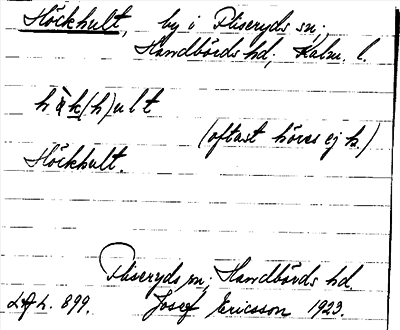 Höckhult, by i Fliseryds sn;
Handbörds hd; Kalm. l.
h ò k (h) u l t
(oftast höres ej h.)
Höckhult.
Fliseryds sn; Handbörds hd.
L.A.L. 899. Josef Ericsson 1923.